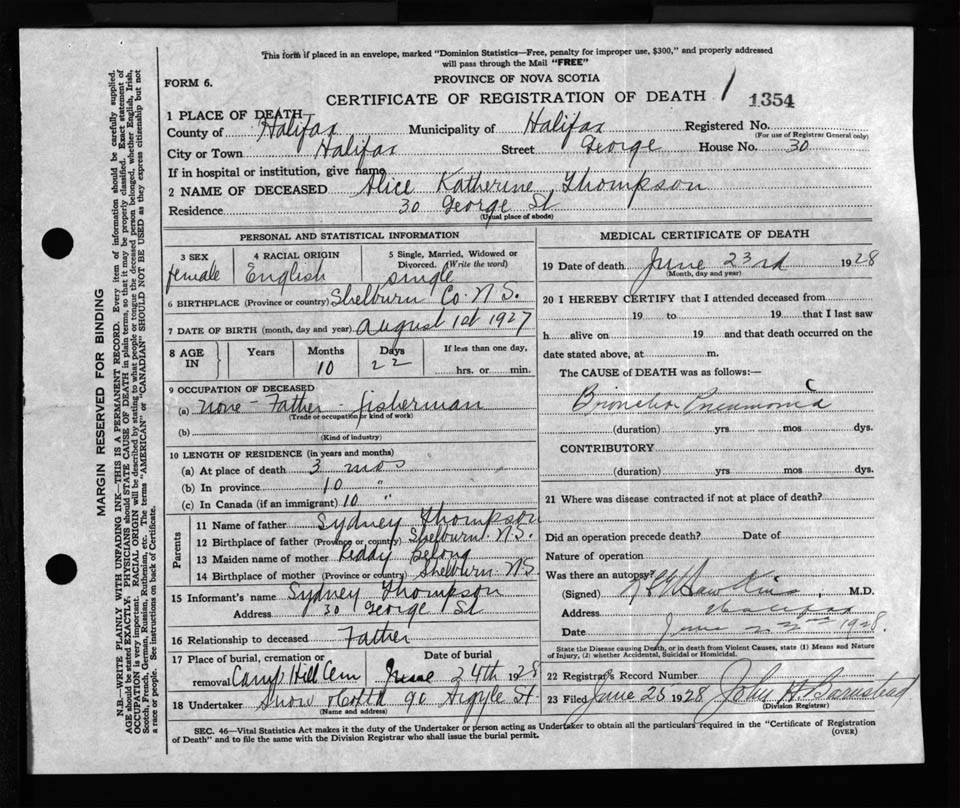 This form if placed in an envelope, marked "Dominion Statistics—Free, penalty for improper use, $300," and properly addressed
will pass through the Mail "FREE"
FORM 6.
PROVINCE OF NOVA SCOTIA
CERTIFICATE OF REGISTRATION OF DEATH 1354
1 PLACE OF DEATH—
County of Halifax Municipality of Halifax Registered No.
(For use of Registrar General only)
City or Town Halifax Street George House No. 30
If in hospital or institution, give name
2 NAME OF DECEASED Alice Katherine Thompson
Residence 30 George St
(Usual place of abode)
PERSONAL AND STATISTICAL INFORMATION
3 SEX 4 RACIAL ORIGIN 5 Single, Married, Widowed or
Divorced. (Write the word)
female English single
6 BIRTHPLACE (Province or country) Shelburn Co. N.S.
7 DATE OF BIRTH (month, day and year) August 1st 1927
8 AGE IN Years Months Days If less than one day,
10 22 hrs. or min.
9 OCCUPATION OF DECEASED
(a) none - Father - fisherman
(Trade or occupation or kind of work)
(b)
(Kind of industry)
10 LENGTH OF RESIDENCE (in years and months)
(a) At place of death 3 mos
(b) In province 10 "
(c) In Canada (if an immigrant) 10 "
Parents
11 Name of father Sydney Thompson
12 Birthplace of father (Province or country) Shelburn N.S.
13 Maiden name of mother
14 Birthplace of mother (Province or country) Shelburn N.S.
15 Informant's name Sydney Thompson
Address 30 George St
16 Relationship to deceased Father
17 Place of burial, cremation or Date of burial
removal Camp Hill Cem June 24th 1928
18 Undertaker Snow 90 Argyle St.
(Name and address)
MEDICAL CERTIFICATE OF DEATH
19 Date of death June 23rd 1928
(Month, day and year)
20 I HEREBY CERTIFY that I attended deceased from
19 to 19 that I last saw
h alive on 19 and that death occurred on the
date stated above, at m.
The CAUSE of DEATH was as follows:—
Broncho Pneumonia
(duration) yrs mos dys.
CONTRIBUTORY
(duration) yrs mos dys.
21 Where was disease contracted if not at place of death?
Did an operation precede death? Date of
Nature of operation
Was there an autopsy?
(Signed) M.D.
Address Halifax
Date June 1928.
State the Disease causing Death, or in death from Violent Causes, state (1) Means and
Nature of Injury, (2) whether Accidental, Suicidal or Homicidal.
22 Registrar's Record Number
23 Filed June 25 1928 John H Barnstead
(Division Registrar)
SEC. 46—Vital Statistics Act makes it the duty of the Undertaker or person acting as Undertaker to obtain all the particulars required in the "Certificate of Registration
of Death" and to file the same with the Division Registrar who shall issue the burial permit.
(OVER)
MARGIN RESERVED FOR BINDING
N.B.—WRITE PLAINLY WITH UNFADING INK—THIS IS A PERMANENT RECORD. Every item of information should be carefully supplied.
AGE should be stated EXACTLY. PHYSICIANS should STATE CAUSE OF DEATH in plain terms, so that it may be properly classified. Exact statement of
OCCUPATION is very important. RACIAL ORIGIN will be described by stating to what people or tongue the deceased person belonged, whether English, Irish,
Scotch, French, German, Russian, Ruthenian, etc. The terms "AMERICAN" or "CANADIAN" SHOULD NOT BE USED as they express citizenship but not
a race or people. See instructions on back of Certificate.